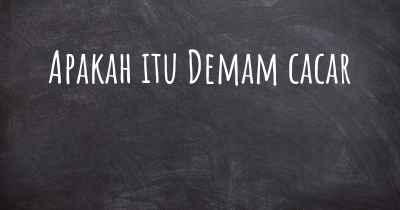 Apakah itu Demam cacar